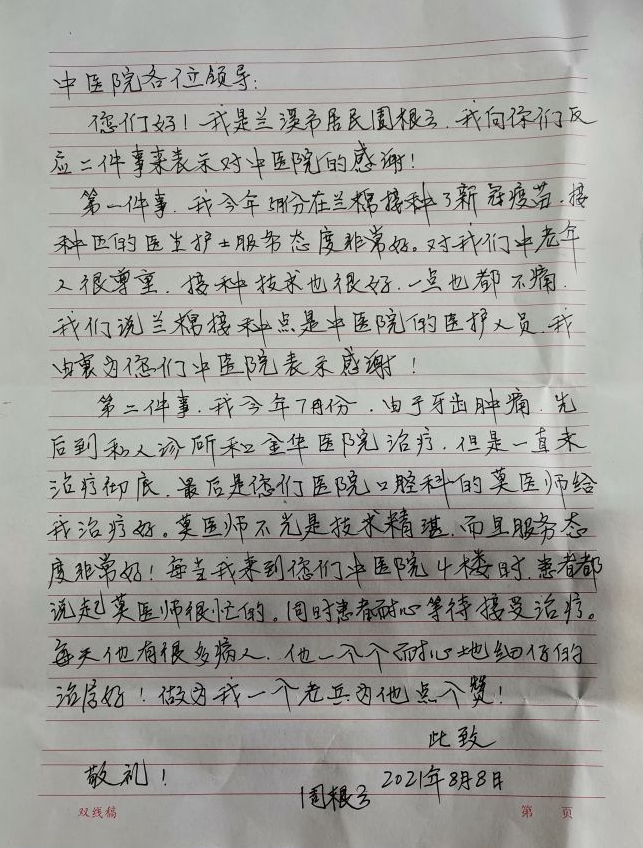 中医院各位领导:
您们好!我是兰溪市居民周根云.我向你们反
应二件事来表示对中医院的感谢!
第一件事.我今年5月份在兰棉接种了新冠疫苗.接
种区的医生护士服务态度非常好。对我们中老年
人很尊重.接种技术也很好.一点也都不痛.
我们说兰棉接种点是中医院的医护人员.我
由衷为您们中医院表示感谢!
第二件事.我今年7月份.由于牙齿肿痛.先
后到私人诊所和金华医院治疗.但是一直未
治疗彻底.最后是您们医院口腔科的莫医师给
我治疗好。莫医师不光是技术精琪.而且服务态
度非常好!每当我来到您们中医院4楼时.患者都
说起莫医师很忙的。同时患者耐心等待接受治疗。
每天他有很多病人.他一个个耐心地细仔的
治疗好!做为我一个老兵为他点个赞!
此致
敬礼!
周根云
2021年8月8日
双线稿
第 页